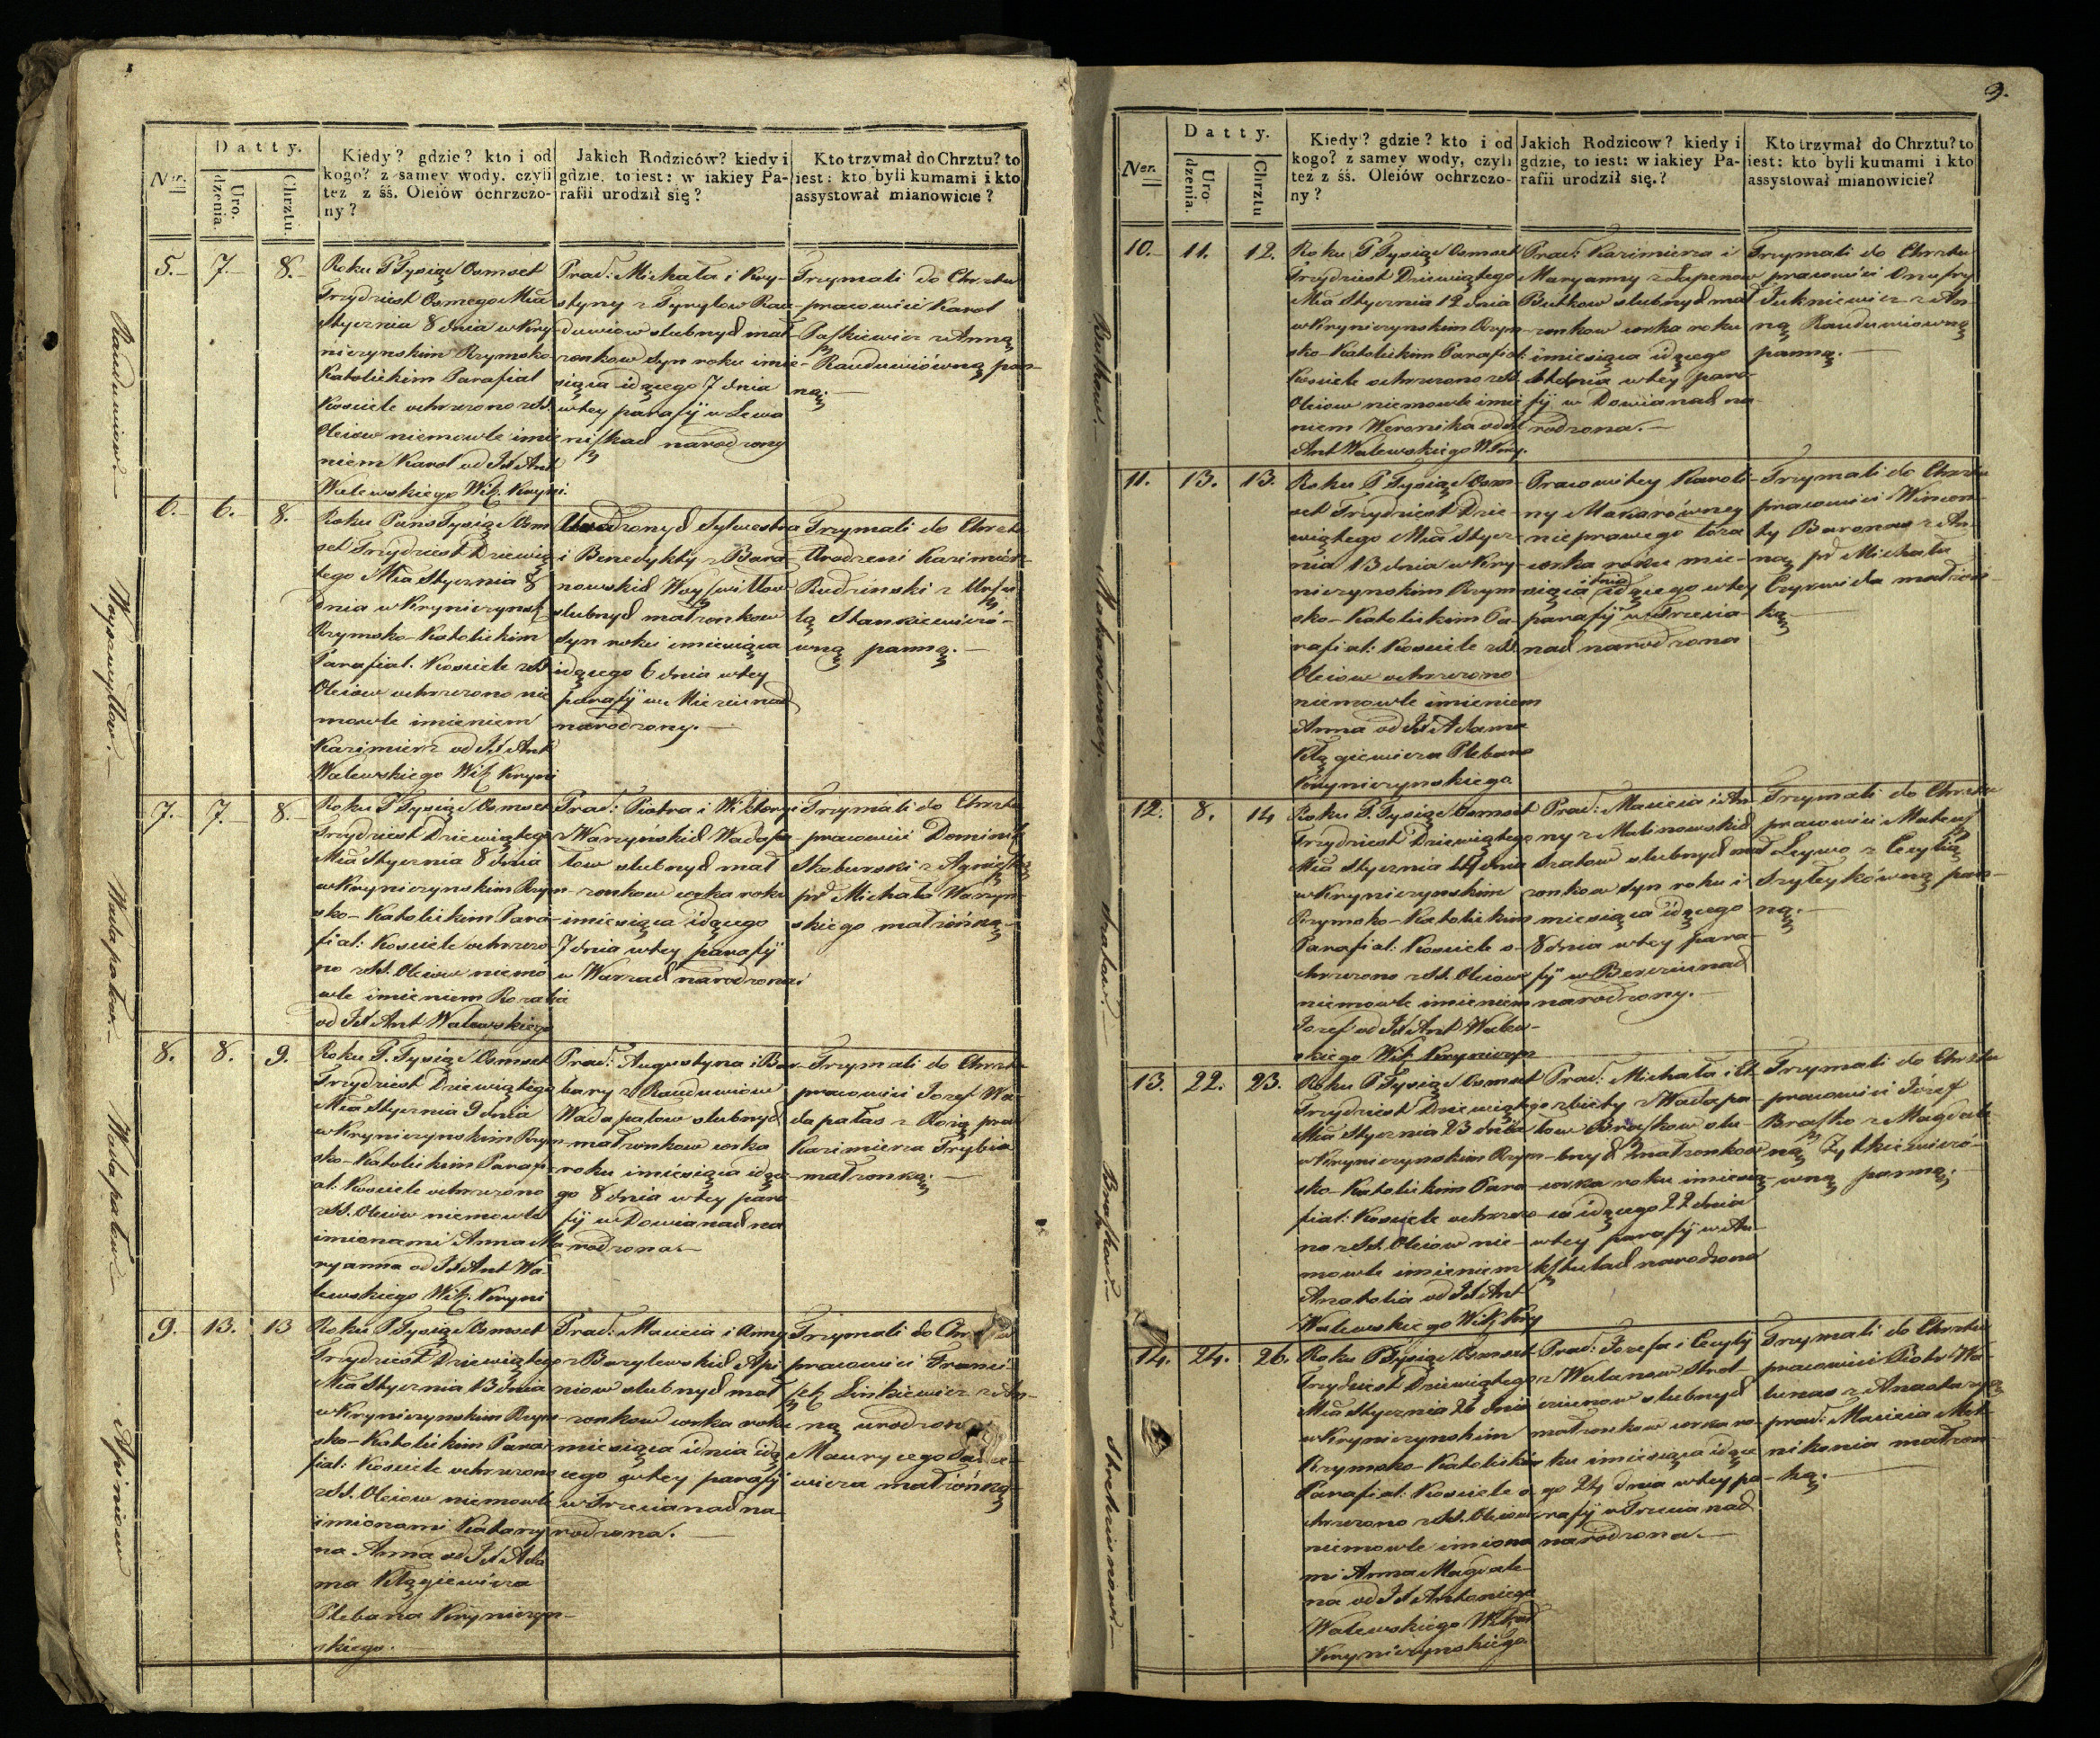 Datty.
Ner.
Urodzenia.
Chrztu.
Kiedy? gdzie? kto i od
kogo? z samey wody, czyli
też z śś. Oleiów ochrzczo-
ny?
Jakich Rodziców? kiedy i
gdzie, to iest: w iakiey Pa-
rafii urodził się?
Kto trzymał do Chrztu? to
iest: kto byli kumami i kto
assystował mianowicie?
Rauduwiow.
5.
7.
8.
Roku P Tysiąc Osmset
Trzydziest Osmego Mca
Stycznia 8 dnia w Kry-
niczynskim Rzymsko
Katolickim Parafial
Kosciele ochrzczono z SS.
Oleiow niemowle imie
niem Karol od Jd Ant
Walewskiego Wik. Kryni.
Prac: Michała i Kry-
styny z Rau-
duwiow slubnych mał-
zonkow syn roku i mie-
siąca idącego 7 dnia
w tey parafij w Lewa
niszkach narodzony
Trzymali do Chrztu
pracowici Karol
Paszkiewicz z Anną
Rauduwiówną pan-
ną.
6.
6.
8.
Roku Pans Tysiąc Osm
set Trzydziest Dziewią
tego Mca Stycznia 8
dnia w Kryniczynsk
Rzymsko-Katolickim
Parafial. Kosciele z SS
Oleiow ochrzczono nie
mowle imieniem
Kazimierz od Jd Ant
Walewskiego Wik Kryni
Urodzonych Sylwestra
i Benedykty z Bara-
nowskich
slubnych małzonkow
syn roku i miesiąca
idącego 6 dnia w tey
parafij w
narodzony.
Trzymali do Chrztu
Urodzeni Kazimierz
Rudzinski z Urszu
lą Stankiewiczó-
wną panną.
Wadapałow.
7.
7.
8.
Roku P Tysiąc Osmset
Trzydziest Dziewiątego
Mca Stycznia 8 dnia
w Kryniczynskim Rzym-
sko-Katolickim Para-
fial: Kosciele ochrzczo-
no z SS. Oleiow niemo
wle imieniem Rozalia
od Jd Ant Walewskiego
Prac: Piotra i Wiktoryi
z Warzyńskich Wadapa
łow slubnych mał
zonkow corka roku
i miesiąca idącego
7 dnia w tey parafij
w Warzach narodzona.
Trzymali do Chrztu
pracowici Dominik
Skoburski z Agnieszką
pr Michała Warzyn-
skiego małzónką
Wadapałow
8.
8.
9.
Roku P. Tysiąc Osmset
Trzydziest Dziewiątego
Mca Stycznia 9 dnia
w Kryniczynskim Rzym-
sko-Katolickim Parafi-
al: Kosciele ochrzczono
z SS. Oleiow niemowle
imionami Anna Ma
ryanna od Jd Ant Wa-
lewskiego Wik. Kryni
Prac: Augustyna i Bar-
bary z Rauduwiow
Wadapałow slubnych
małzonkow corka
roku i miesiąca idące
go 8 dnia w tey para
fij w Dowianach na
rodzona.
Trzymali do Chrztu
pracowici Jozef Wa-
dapałas z Rozą prac
Kazimierza Trybia
małzonką.
Apiniow
9.
13.
13
Roku P Tysiąc Osmset
Trzydziest Dziewiątego
Mca Stycznia 13 dnia
w Kryniczynskim Rzym-
sko-Katolickim Para-
fial: Kosciele ochrzczono
z SS. Oleiow niemowle
imionami Katarzy
na Anna od Jd Ada
ma Kłągiewicza
Plebana Kryniczyn-
skiego.
Prac: Macieia i Anny
z Bazylewskich Api
niow slubnych mał
zonkow corka roku
miesiąca i dnia idą
cego w tey parafij
w Trzecianach na
rodzona.
Trzymali do Chrztu
pracowici Franci
szk Linkiewicz z An-
ną urodzon
Maurycego
wicza małzónką
9.
Datty.
Ner.
Urodzenia.
Chrztu
Kiedy? gdzie? kto i od
kogo? z samey wody, czyli
też z śś. Oleiów ochrzczo-
ny?
Jakich Rodzicow? kiedy i
gdzie, to iest: w iakiey Pa-
rafii urodził się.?
Kto trzymał do Chrztu? to
iest: kto byli kumami i kto
assystował mianowicie?
Butkow.
10.
11.
12.
Roku P Tysiąc Osmset
Trzydziest Dziewiątego
Mca Stycznia 12 dnia
w Kryniczynskim Rzym-
sko-Katolickim Parafial:
Kosciele ochrzczono z SS.
Oleiow niemowle imie
niem Weronika od Jd
Ant Walewskiego W. Kry.
Prac: Kazimierza i
Maryanny z Łapenow
Butkow slubnych mał
zonkow corka roku
i miesiąca idącego
11 dnia w tey para-
fij w Dowianach na-
rodzona.
Trzymali do Chrztu
pracowici Onufry
Jukniewicz z An-
ną Rauduwiowną
panną.
Makarówney.
11.
13.
13.
Roku P Tysiąc Osm-
set Trzydziest Dzie-
wiątego Mca Stycz-
nia 13 dnia w Kry-
niczynskim Rzym-
sko-Katolickim Pa-
rafial: Kosciele z SS.
Oleiow ochrzczono
niemowle imieniem
Anna od Jd Adama
Kłągiewicza Plebana
Kryniczynskiego
Pracowitey Karoli-
ny Makarówney
nieprawego łoza
corka roku mie-
siąca i dnia idącego w tey
parafij w Trzecia-
nach narodzona
Trzymali do Chrztu
pracowici Wincen-
ty Baronas z An-
ną pr Michała
Czyzwida małzon-
ką
Szatow.
12.
8.
14
Roku P. Tysiąc Osmset
Trzydziest Dziewiątego
Mca Stycznia 14 dnia
w Kryniczynskim
Rzymsko-Katolickim
Parafial: Kosciele o-
chrzczono z SS. Oleiow
niemowle imieniem
Jozef od Jd Ant Walew-
skiego Wik Kryniczyn
Prac: Macieia i An-
ny z Malinowskich
Szatow slubnych mał
zonkow syn roku i
miesiąca idącego
8 dnia w tey para-
fij w Berzcinach
narodzony.
Trzymali do Chrztu
pracowici Mateuj
Leywo z Cecylią
Szyłeykówną pan-
ną.
Braszkow.
13.
22.
23.
Roku P Tysiąc Osmset
Trzydziest Dziewiątego
Mca Stycznia 23 dnia
w Kryniczynskim Rzym-
sko-Katolickim Para-
fial: Kosciele ochrzczo-
no z SS. Oleiow nie-
mowle imieniem
Anatolia od Jd Ant
Walewskiego Wik Kry
Prac: Michała i El-
zbiety z Wadapa-
łow Braszkow slu-
bnych małzonkow
corka roku i miesią-
ca idącego 22 dnia
w tey parafij w Au-
ksztulach narodzona
Trzymali do Chrztu
pracowici Józef
Braszko z Magdale
ną Zytkiewiczó-
wną panną.
14.
24.
26.
Roku P Tysiąc Osmset
Trzydziest Dziewiątego
Mca Stycznia 26 dnia
w Kryniczynskim
Rzymsko-Katolickim
Parafial: Kosciele o-
chrzczono z SS. Oleiow
niemowle imiona
mi Anna Magdale
na od Jd Antoniego
Walewskiego Wikar
Kryniczynskiego
Prac: Jozefa i Cecylij
z Walanow
slubnych
małzonkow corka ro-
ku i miesiąca idące
go 24 dnia w tey pa-
rafij w Trzecianach
narodzona.
Trzymali do Chrztu
pracowici Piotr Wa-
lunas z Anastazyą
prac: Macieia Mil-
nikonia małzon-
ką.